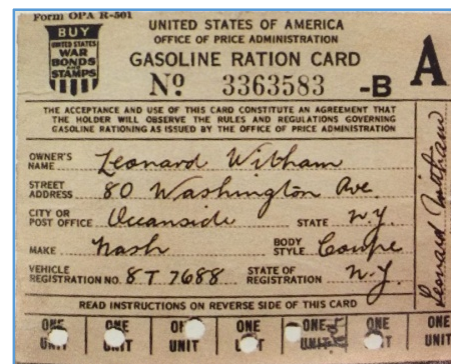 Form OPA R-501
BUY
UNITED STATES
WAR
BONDS
AND
STAMPS
UNITED STATES OF AMERICA
OFFICE OF PRICE ADMINISTRATION
GASOLINE RATION CARD
Nº 3363583 -B
A
THE ACCEPTANCE AND USE OF THIS CARD CONSTITUTE AN AGREEMENT THAT
THE HOLDER WILL OBSERVE THE RULES AND REGULATIONS GOVERNING
GASOLINE RATIONING AS ISSUED BY THE OFFICE OF PRICE ADMINISTRATION
OWNER'S NAME Leonard Witham
STREET ADDRESS 80 Washington Ave.
CITY OR POST OFFICE Oceanside STATE N.Y.
MAKE Nash BODY STYLE Coupe
VEHICLE REGISTRATION NO. 8T 7688 STATE OF REGISTRATION N.Y.
Leonard Witham
READ INSTRUCTIONS ON REVERSE SIDE OF THIS CARD
ONE UNIT ONE UNIT ONE UNIT ONE UNIT ONE UNIT ONE UNIT